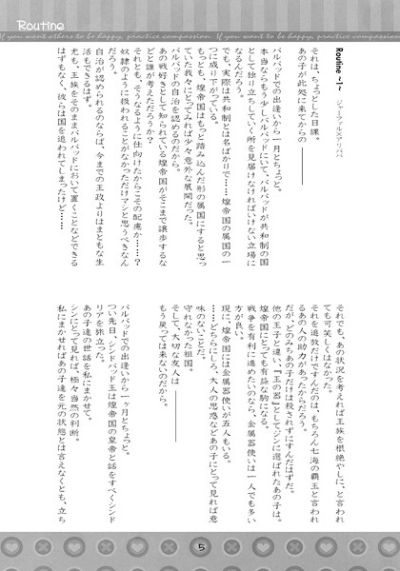 Routine
If you want others to be happy, practice compassion. If you want to be happy, practice compassion.
Routine ~1~ ジャーファル×アリババ
それは、ちょっとした日課。
あの子が此処に来てからの━━━
バルバッドでの出逢いから一月とちょっと。
本当ならもう少しバルバッドにいて、バルバッドが共和制の国
として独り立ちしていく所を見届けなければいけない立場に
なるんだろう。
でも、実際は共和制とは名ばかりで……煌帝国の属国の一
つに成り下がっている。
もっとも、煌帝国はもっと踏み込んだ形の属国にすると思っ
ていた我々にとってみれば少々意外な展開だった。
バルバッドの自治を認めるのだから。
あの戦好きとして知られている煌帝国がそこまで譲歩するな
どと誰が考えただろうか？
それとも、そうなるように仕向けたからこその配慮か……？
奴隷のように扱われることがなかっただけマシと思うべきなん
だろう。
自治が認められるのならば、今までの王政よりはまともな生
活もできるはず。
尤も、王族をそのままバルバッドにおいて置くことなどできる
はずもなく、彼らは国を追われてしまったけど……
それでも、あの状況を考えれば王族を根絶やしに、と言われ
ても可笑しくはなかった。
それを追放だけですんだのは、もちろん七海の覇王と言われ
るあの人の助力があったからだろう。
だが、どのみちあの子だけは殺されずにすんだはずだ。
他の王子と違い、『王の器』としてジンに選ばれたあの子は、
煌帝国にとっても有益な駒になる。
戦争を有利に進めたいのなら、金属器使いは一人でも多い
方が良い。
現に、煌帝国には金属器使いが五人もいる。
……どちらにしろ、大人の思惑などあの子にとって見れば意
味のないことだ。
守れなかった祖国。
そして、大切な友人は━━━
もう戻っては来ないのだから。
バルバッドでの出逢いから一ヶ月とちょっと。
つい先日、シンドバッド王は煌帝国の皇帝と話をすべくシンド
リアを旅立った。
あの子達の世話を私にまかせて。
シンにとって見れば、極々当然の判断。
私にまかせればあの子達を元の状態とは言えなくとも、立ち
5